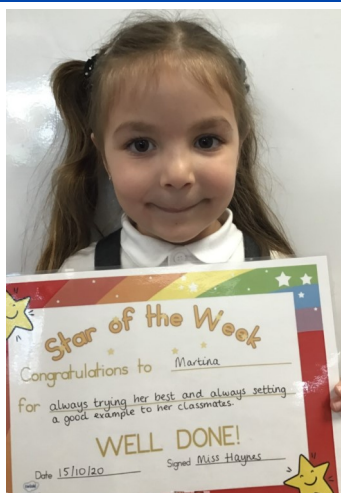 Star of the Week
Congratulations to Martina
for always trying her best and always setting
a good example to her classmates.
WELL DONE!
Date 15/10/20 Signed Miss Haynes